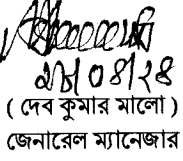 ২৯/০৪/২৪
( দেব কুমার মালো )
জেনারেল ম্যানেজার